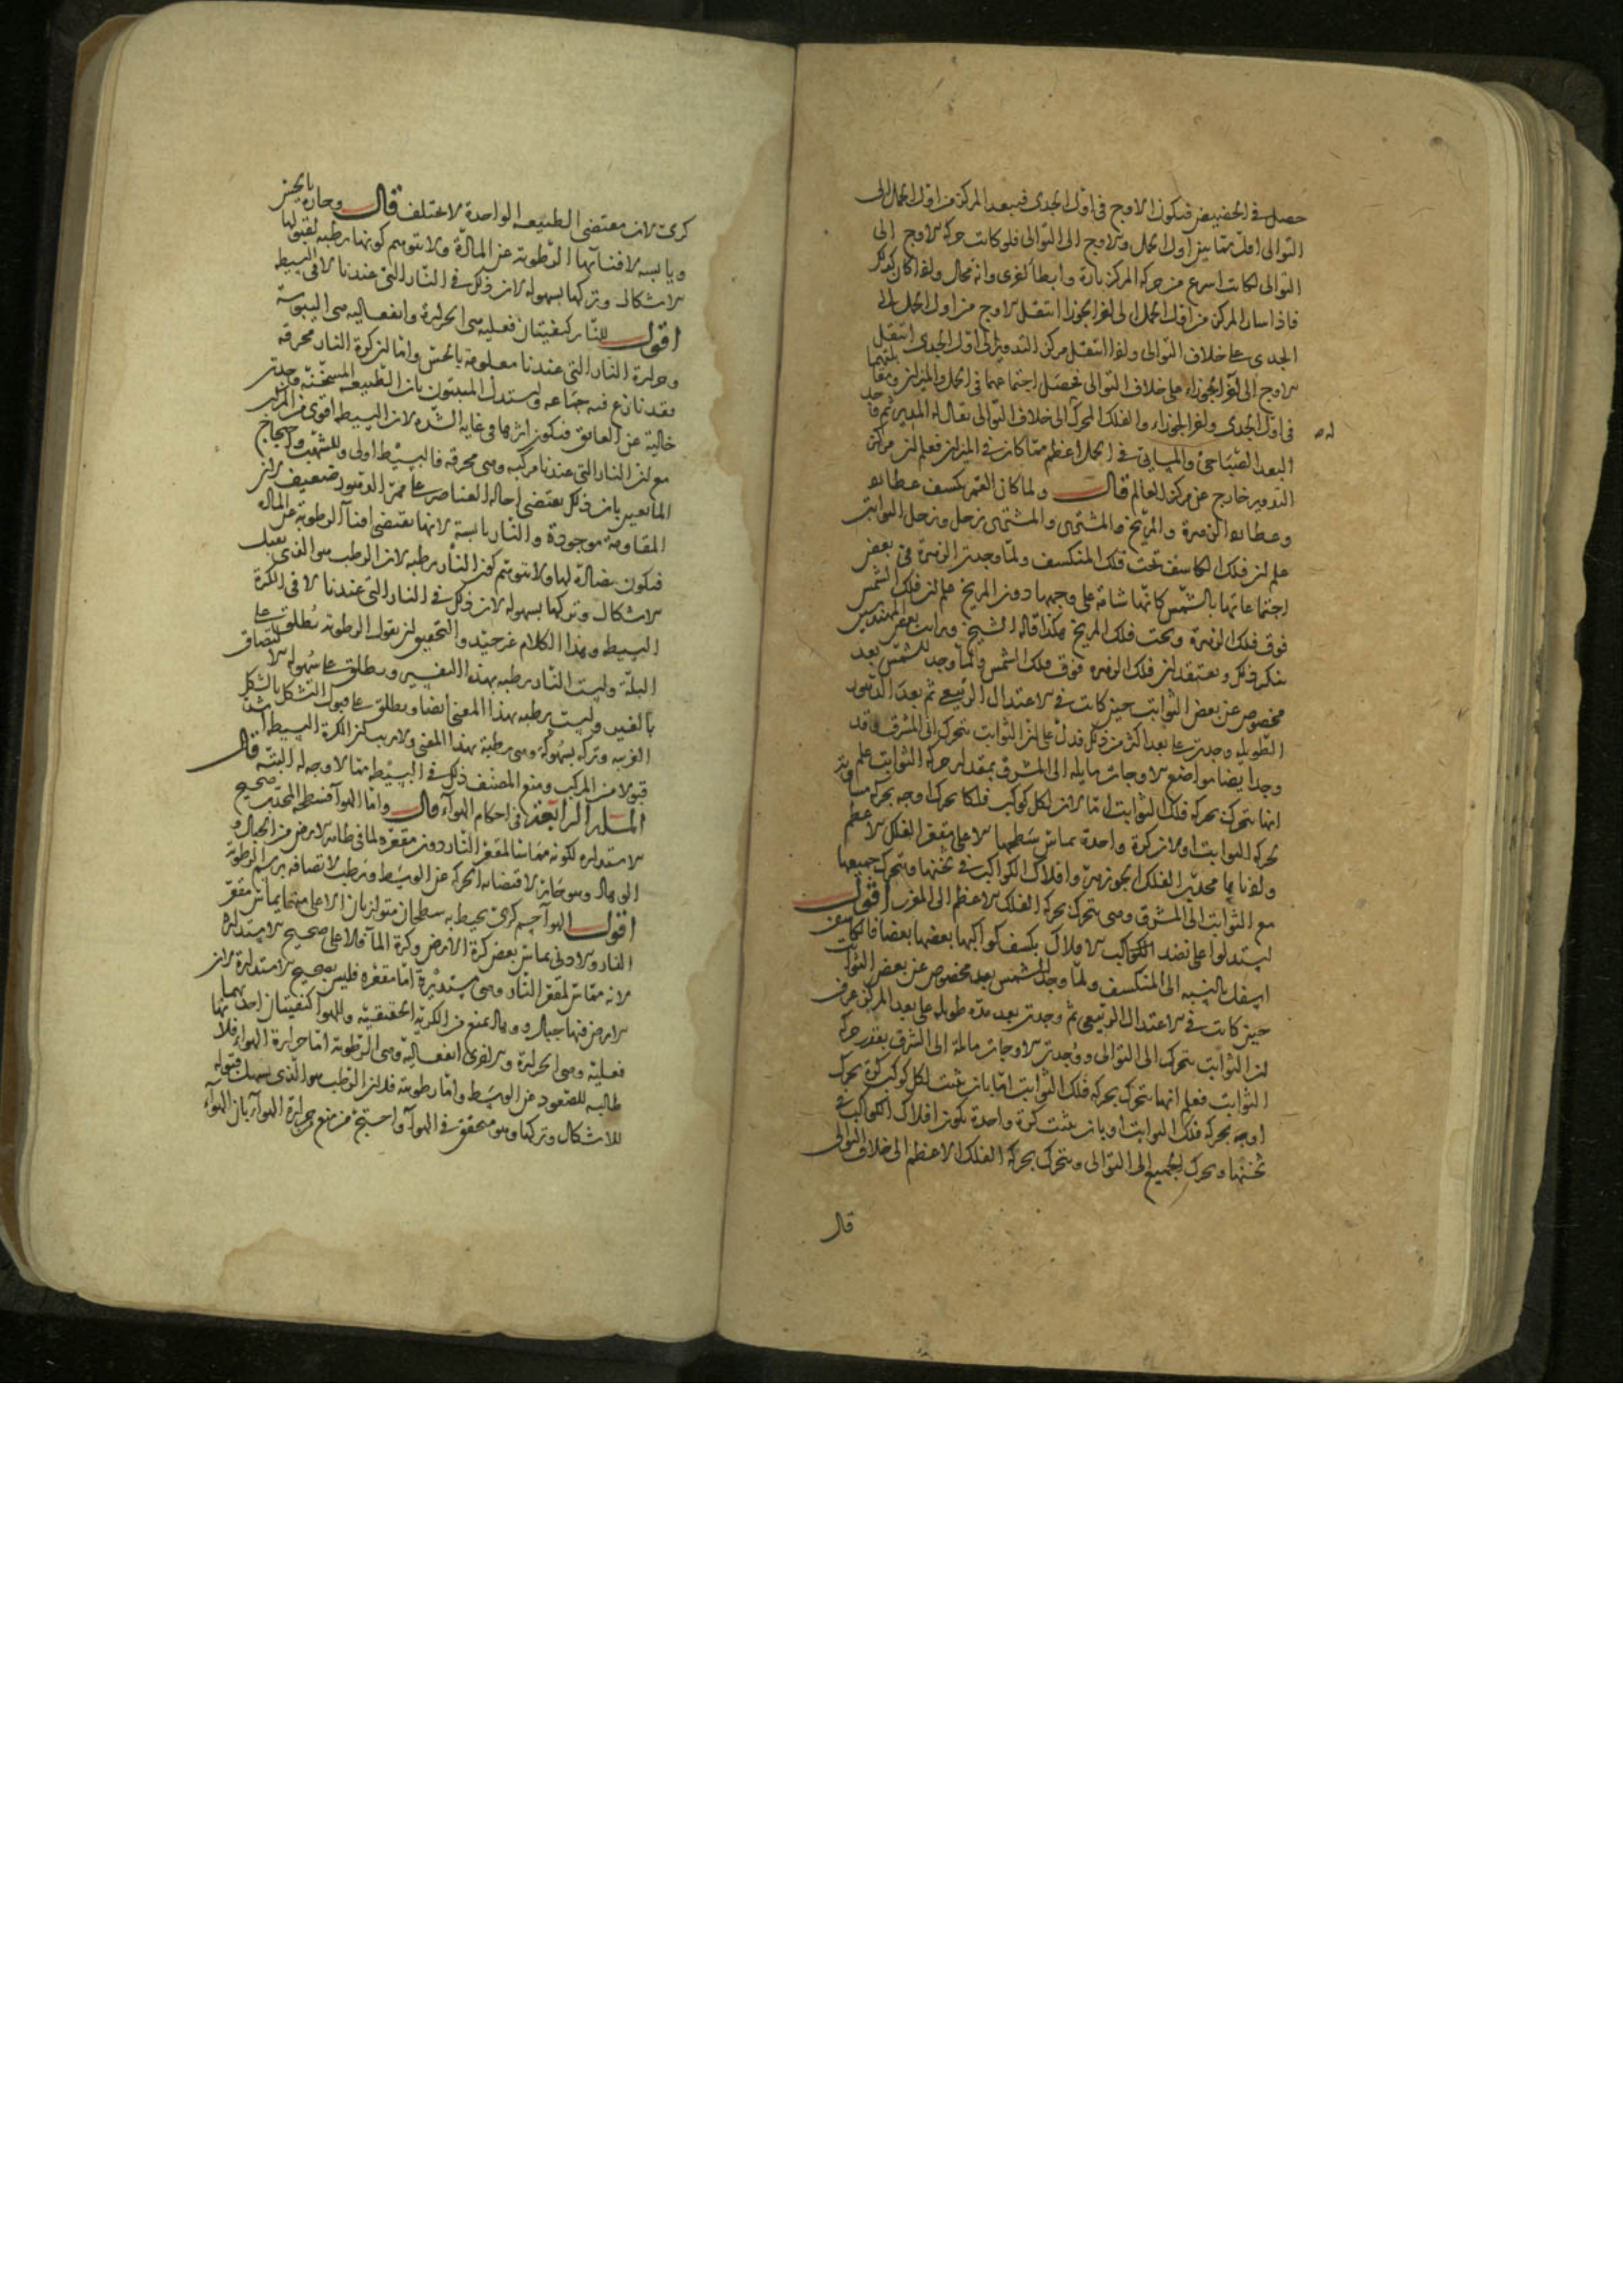 حصل في الحضيض فيكون الاوج في اول الجدى فيبعد المركز من اول الحمل الى
التوالى اقل مما بين اول الحمل والاوج الى التوالى فلو كانت حركة الاوج الى
التوالى لكانت اسرع من حركة المركز تارة وابطأ اخرى وانه محال ولما كان كذلك
فاذا سار المركز من اول الحمل الى اخر الجوزا انتقل الاوج من اول الحمل الى
الجدى على خلاف التوالى واذا انتقل مركز التدوير الى اول الجدى انتقل
الاوج الى اخر الجوزاء على خلاف التوالى فحصل اجتماعهما في الحمل والميزان
في اول الجدى واخر الجوزاء والفلك المحرك الى خلاف التوالى يقال له المدير ثم وجد
البعد الصباحى والمسايى في الحمل اعظم مما كان في الميزان فعلم ان مركز
التدوير خارج عن مركز العالم قال ولما كان القمر يكسف عطارد
وعطارد الزهرة والمريخ والمشترى والمشترى زحل وزحل الثوابت
علم ان فلك الكاسف تحت فلك المنكسف ولما وجدت الزهرة في بعض
اجتماعاتها بالشمس كانها شامة على وجهها دون المريخ علم ان فلك الشمس
فوق فلك الزهرة وتحت فلك المريخ هكذا قاله الشيخ ورايت بعض المهندسين
ينكر ذلك ويعتقد ان فلك الزهره فوق فلك الشمس ولما وجد للشمس بعد
مخصوص عن بعض الثوابت حين كانت في الاعتدال الربيعي ثم بعد الدهور
الطويله وجدت على بعد اكثر من ذلك فدل على ان الثوابت تتحرك الى المشرق وقد
وجد ايضا مواضع الاوجات مايله الى المشرق بمقدار حركة الثوابت علم
انها تتحرك بحركة فلك الثوابت اما لان لكل كوكب فلكا يحرك اوجه بحركة مساوية
لحركة الثوابت او لان كرة واحدة يماس سطحها الاعلى مقعر الفلك الاعظم
محدب الفلك الجوزهر وافلاك الكواكب في ثخنها ويتحرك جميعها
مع الثوابت الى المشرق وهى تتحرك بحركة الفلك الاعظم الى المغرب اقول
استدلوا على نضد الكواكب الافلاك بكسف كواكبها بعضها بعضا فالكاسف
اسفل بالنسبه الى المنكسف ولما وجد للشمس بعد مخصوص عن بعض الثوابت
حين كانت في الاعتدال الربيعي ثم وجدت بعد مدة طويله على بعد اكثر عرف
ان الثوابت تتحرك الى التوالى ووجدت الاوجات مائلة الى الشرق بقدر حركة
الثوابت فعلم انها تتحرك بحركة فلك الثوابت اما بان يثبت لكل كوكب كرة تحرك
اوجه بحركة فلك الثوابت او بان يثبت كرة واحدة يكون افلاك الكواكب في
ثخنها ويحرك الجميع الى التوالى ويتحرك بحركة الفلك الاعظم الى خلاف التوالى
قال
كرى لان مقتضى الطبيعه الواحدة لا يختلف قال وحارة بالحس
ويابسه لافنائها الرطوبة عن المادة ولا يتوهم كونها رطبه لقبولها
الاشكال وتركها بسهولة لان ذلك في النار التى عندنا لا في البسيط
اقول للنار كيفيتان فعلية هى الحرارة وانفعاليه هى اليبوسة
وحرارة النار التى عندنا معلومة بالحس واما ان كرة النار محرقه
فقد نازع فيه جماعه واستدل المثبتون بان الطبيعه المسخنه وجدت
خالية عن العائق فيكون اثرها في غاية الشده لان البسيط اقوى من المركب
مع ان النار التى عندنا مركبه وهى محرقه فالبسيط اولى وللشهب واحتجاج
المانعين بان ذلك يقتضى احالة العناصر على ممر الدهور ضعيف لان
المقاومة موجودة والنار يابسة لانها تقتضى افناء الرطوبة عن المادة
فيكون مضادة لها ولا يتوهم كون النار رطبه لان الرطب هو الذى يقبل
الاشكال وتركها بسهولة لان ذلك في النار التى عندنا لا في الكرة
البسيط وهذا الكلام غير جيد والتحقيق ان نقول الرطوبة تطلق على
البلة وليست النار رطبه بهذا التفسير ويطلق على سهولة الالتصاق
بالغير وليست رطبه بهذا المعنى ايضا ويطلق على قبول التشكل بالشكل
الغريب وتركه بسهولة وهى رطبة بهذا المعنى ولا ريب ان الكرة البسيط اشد
قبولا من المركب ومنع المصنف ذلك في البسيط مما لا وجه له البته قال
المسلة الرابعة في احكام الهوآء قال واما الهوآء فسطحه المحدب صحيح
الاستدارة لكونه مماسا لمقعر النار دون مقعره لما في ظاهر الارض من الجبال و
الوهاد وهو حار لاقتضائه الحركة عن الوسط ورطب لاتصافه برسم الرطوبة
اقول الهوآء جسم كرى يحيط به سطحان متوازيان الاعلى منهما يماس مقعر
النار والادنى يماس بعض كرة الارض وكرة المآء فالاعلى صحيح الاستدارة
لانه مماس لمقعر النار وهى مستديرة اما مقعره فليس بصحيح الاستدارة لان
الارض فيها جبال ووهاد تمنع من الكرية الحقيقيه وللهوآء كيفيتان احديهما
فعلية وهى الحرارة والاخرى انفعالية وهى الرطوبة اما حرارة الهواء فلانها
طالبه للصعود عن الوسط واما رطوبته فلان الرطب هو الذى يسهل قبوله
للاشكال وتركها وهو متحقق في الهوآء واحتج من منع حرارة الهوآء بان الهوآء